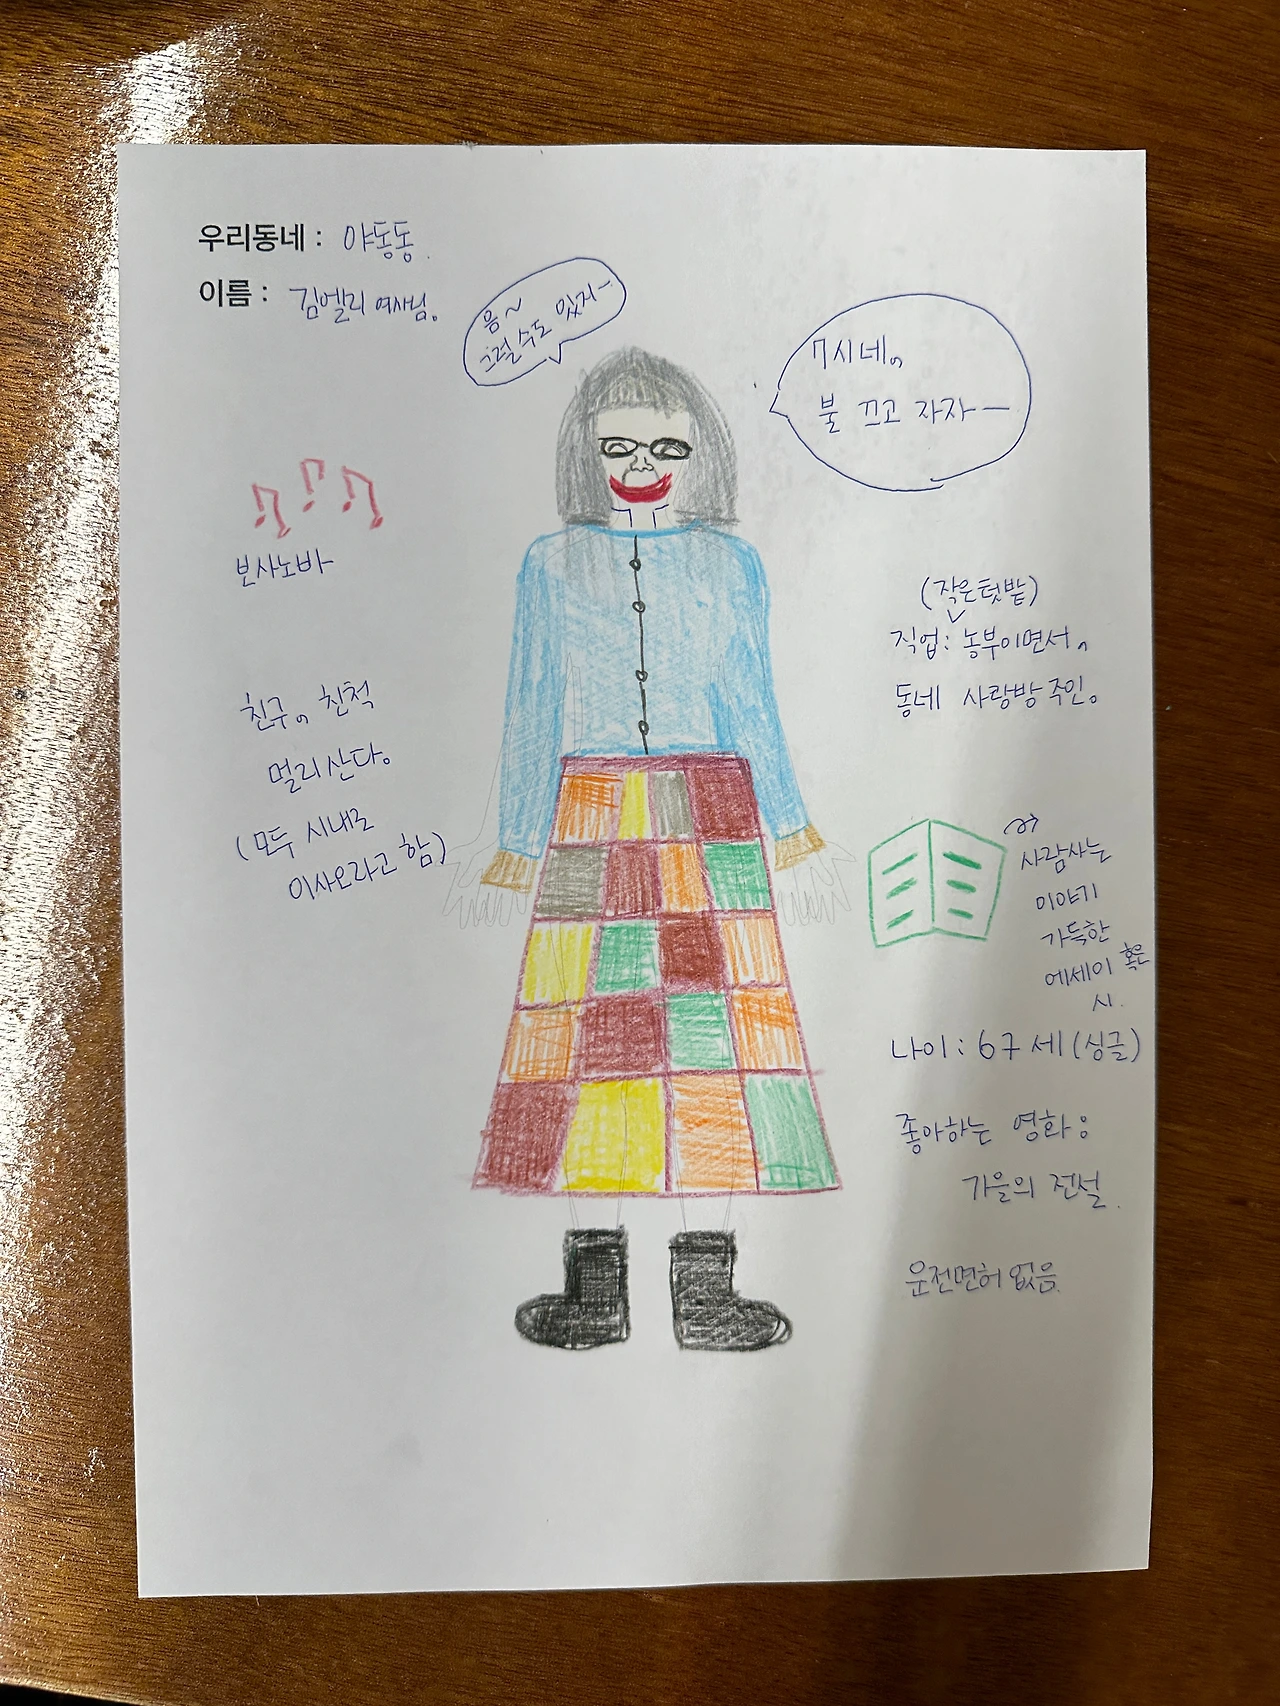 우리동네 : 야동동.
이름 : 김엘리 여사님。
음~
그럴 수도 있지ㅡ
7시네。
불 끄고 자자ㅡ
보사노바
(작은텃밭)
직업: 농부이면서。
동네 사랑방 주인。
친구。친척
멀리 산다。
(모두 시내로
이사오라고 함)
사람사는
이야기
가득한
에세이 혹은
시.
나이 : 67세 (싱글)
좋아하는 영화 :
가을의 전설.
운전면허 없음.